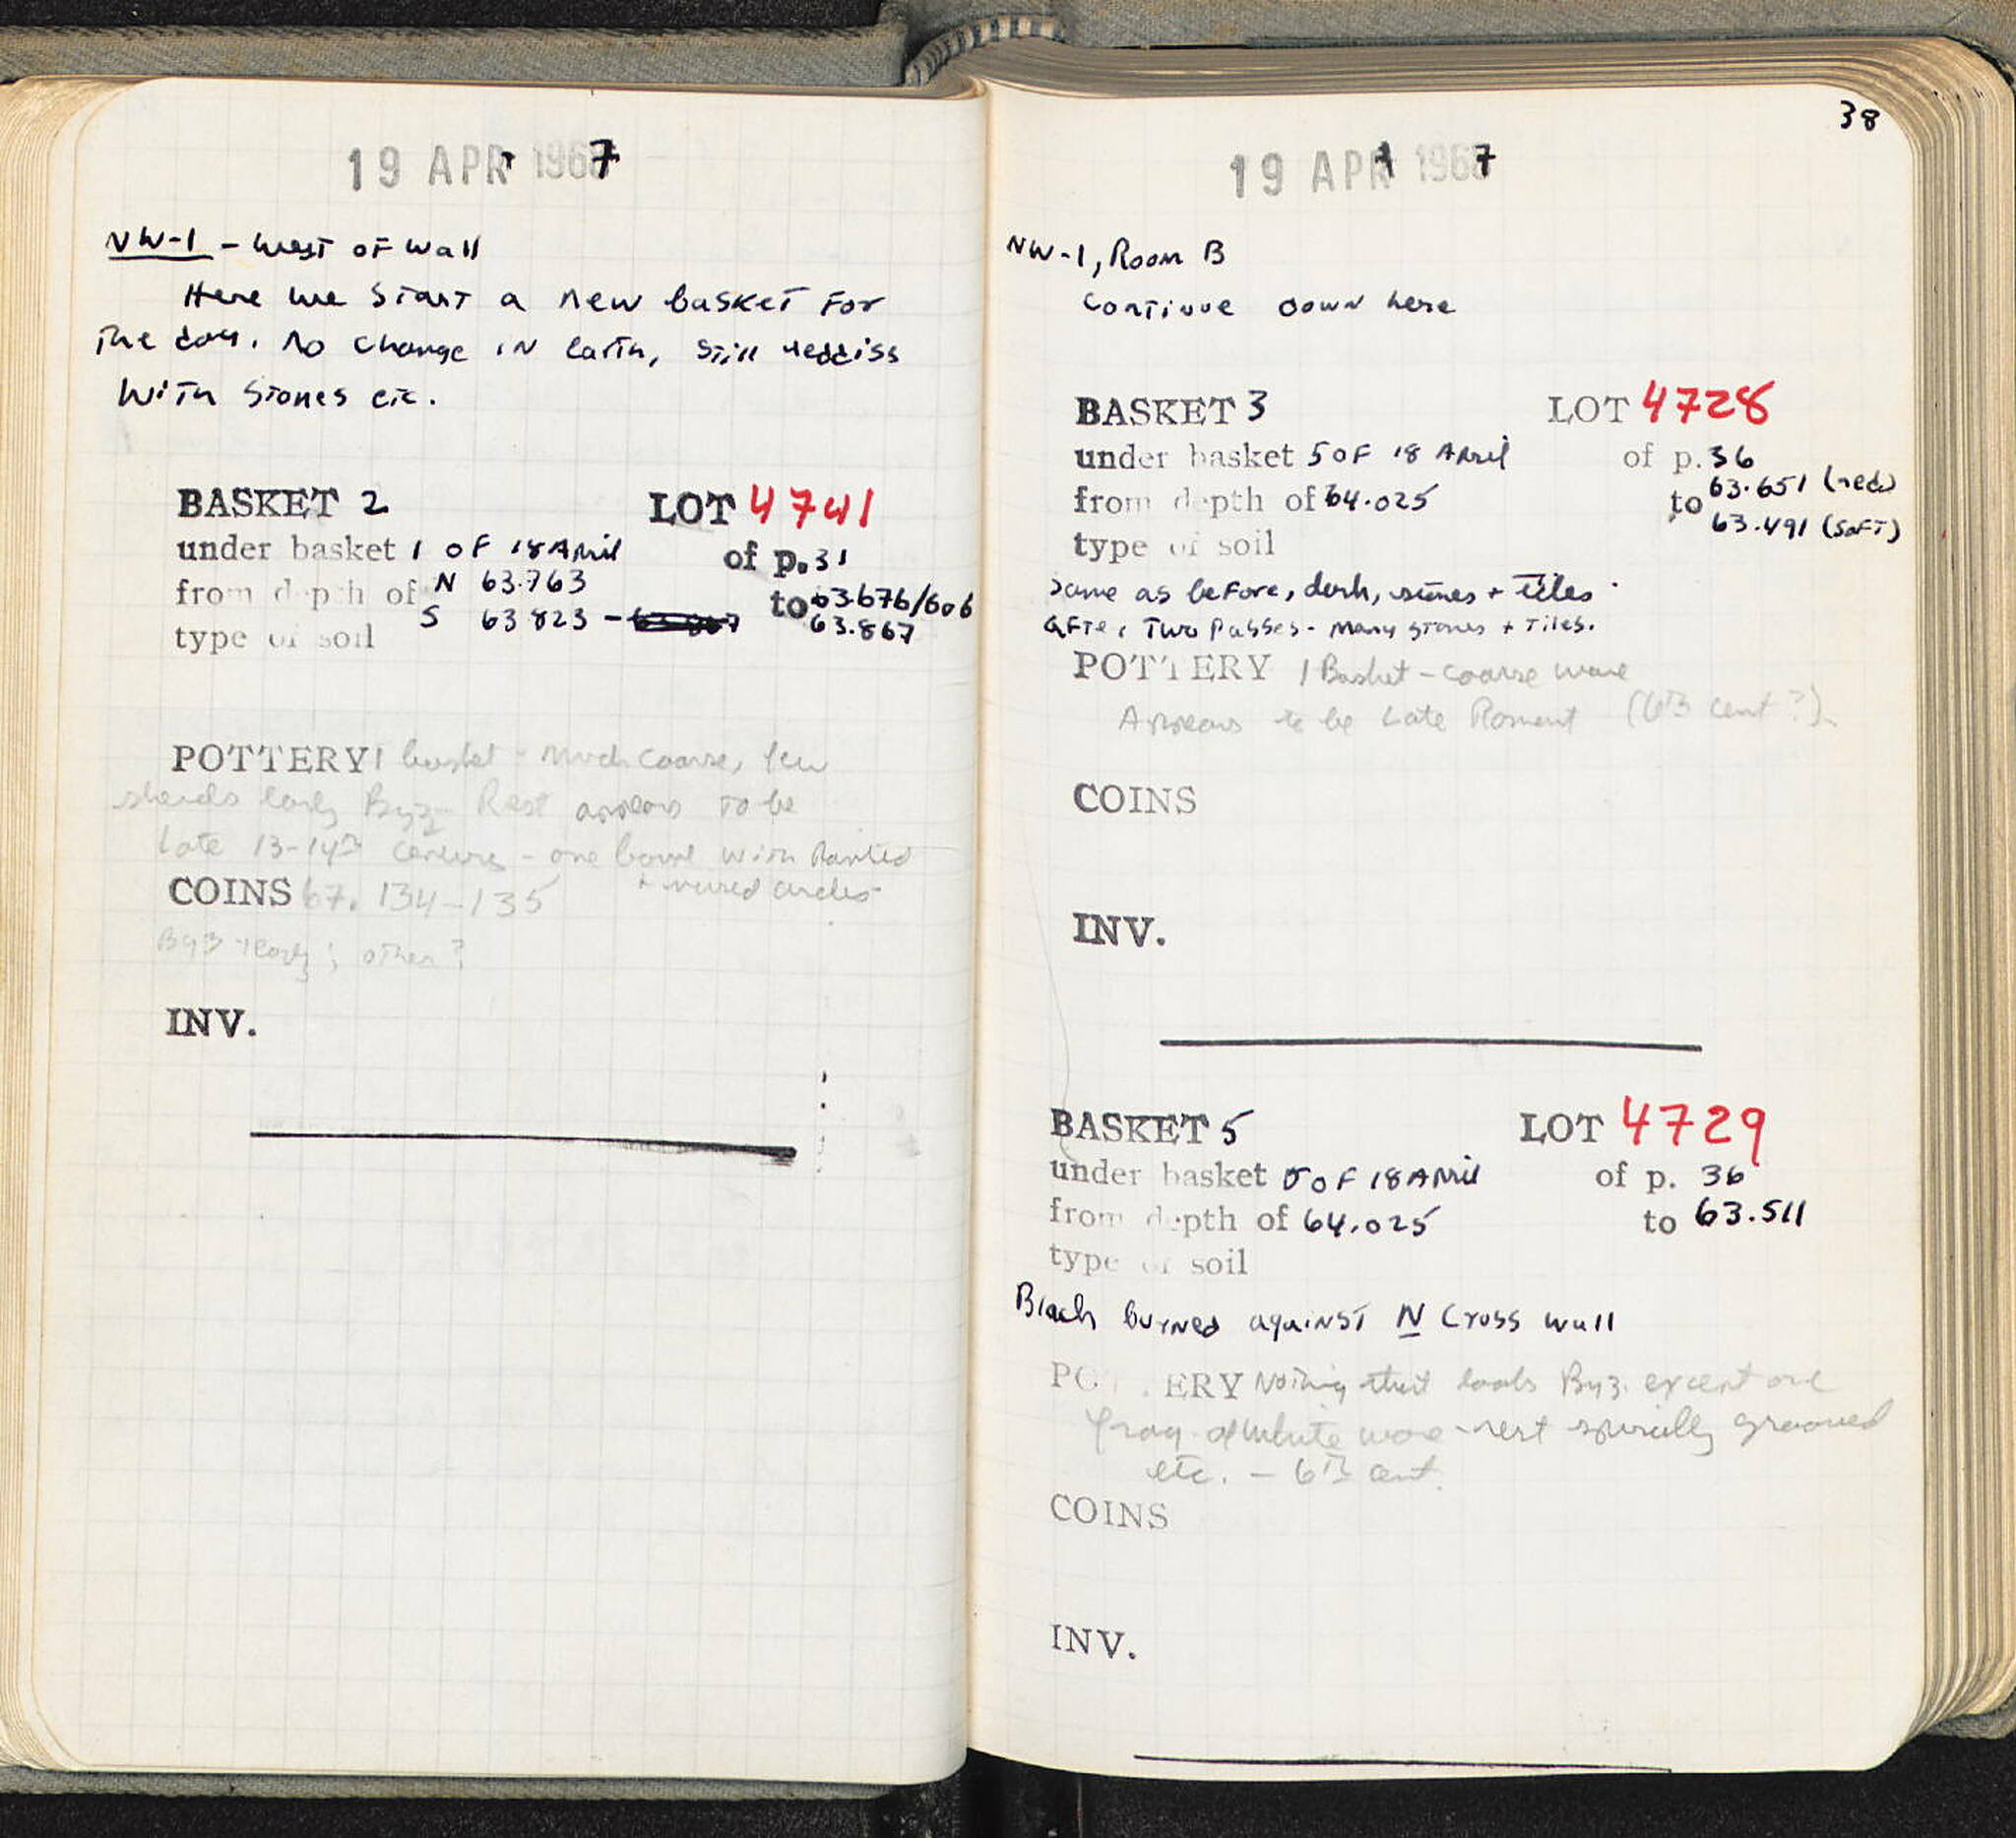 19 APR 1967
NW-1 - West of Wall
Here we start a new basket for
the day. No change in earth, still reddiss
with stones etc.
BASKET 2 LOT 4741
under basket 1 of 18 April of p. 31
from depth of N 63.763 to 63.676/606
S 63 823 - 63.867
type of soil
POTTERY 1 basket - much coarse, few
sherds early Byz. Rest appears to be
late 13-14th century - one bowl with painted
+ incised circles
COINS 67. 134-135
Byz ; other?
INV.
38
19 APR 1967
NW-1, Room B
Continue down here
BASKET 3 LOT 4728
under basket 5 of 18 April of p. 36
from depth of 64.025 to 63.651 (red)
63.491 (soft)
type of soil
same as before, dark, stones + tiles
after two passes - many stones + tiles.
POTTERY 1 Basket - coarse ware
Appears to be Late Roman (6th cent?).
COINS
INV.
BASKET 5 LOT 4729
under basket 5 of 18 April of p. 36
from depth of 64.025 to 63.511
type of soil
Black burned against N Cross wall
POTTERY Nothing that looks Byz. except one
frag. of white ware - rest spirally grooved
etc. - 6th cent.
COINS
INV.